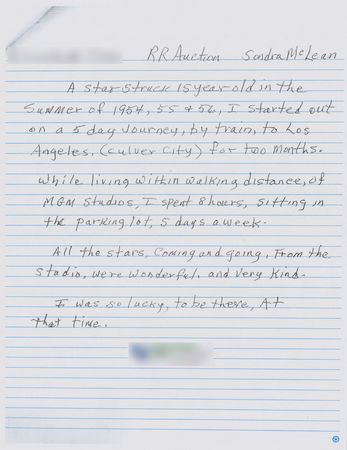 RR Auction Sondra McLean
A star struck 15 year old in the
Summer of 1954, 55 & 56, I started out
on a 5 day Journey, by train, to Los
Angeles, (Culver City) for two months.
While living within walking distance, of
MGM Studios, I spent 8 hours, sitting in
the parking lot, 5 days a week.
All the stars, Coming and going, From the
studio, were wonderful. and Very Kind.
I was so lucky, to be there, At
that time.